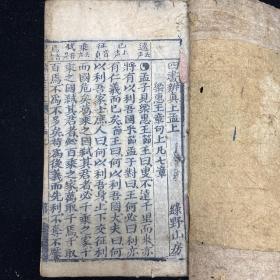 四書辨真上孟上
梁惠王章句上凡七章
綠野山房
孟子見梁惠王王曰叟不遠千里而來亦
將有以利吾國乎孟子對曰王何必曰利亦
有仁義而已矣王曰何以利吾國大夫曰何
以利吾家士庶人曰何以利吾身上下交征利
而國危矣萬乘之國弒其君者必千乘之家千
乘之國弒其君者必百乘之家萬取千焉千取
百焉不爲不多矣苟爲後義而先利不奪不饜